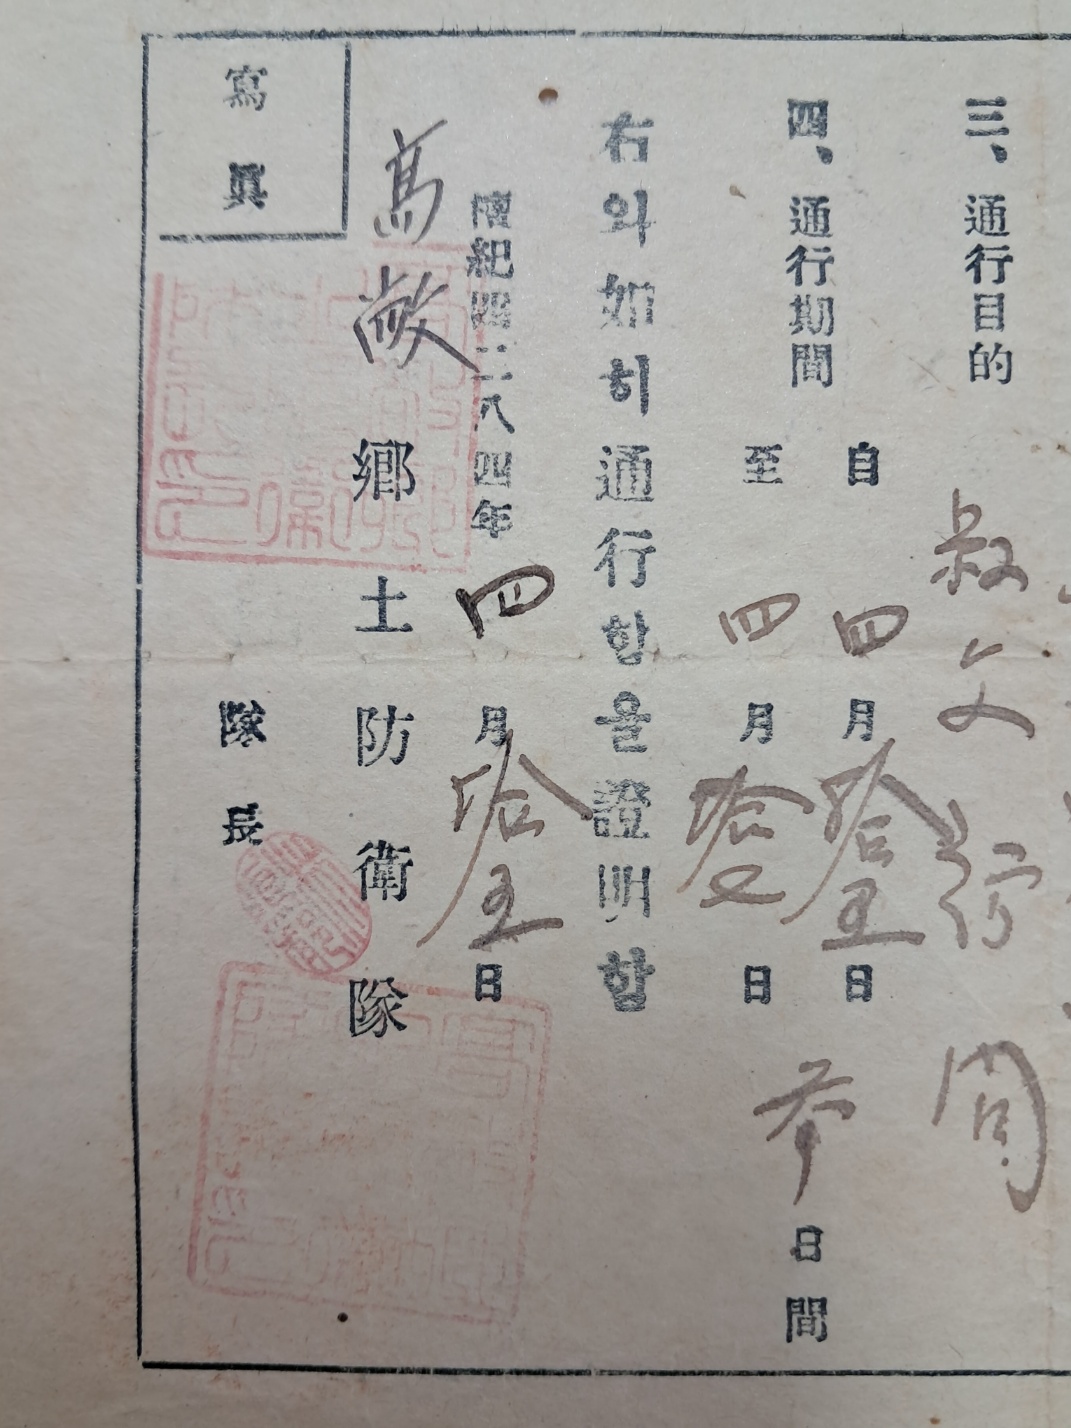 三、通行目的 叔父 行 問
四、通行期間 自 四月拾五日
至 四月拾 日 日間
右와如히通行함을證明함
檀紀四二八四年四月拾五日
高敞鄕土防衛隊
隊長
寫眞